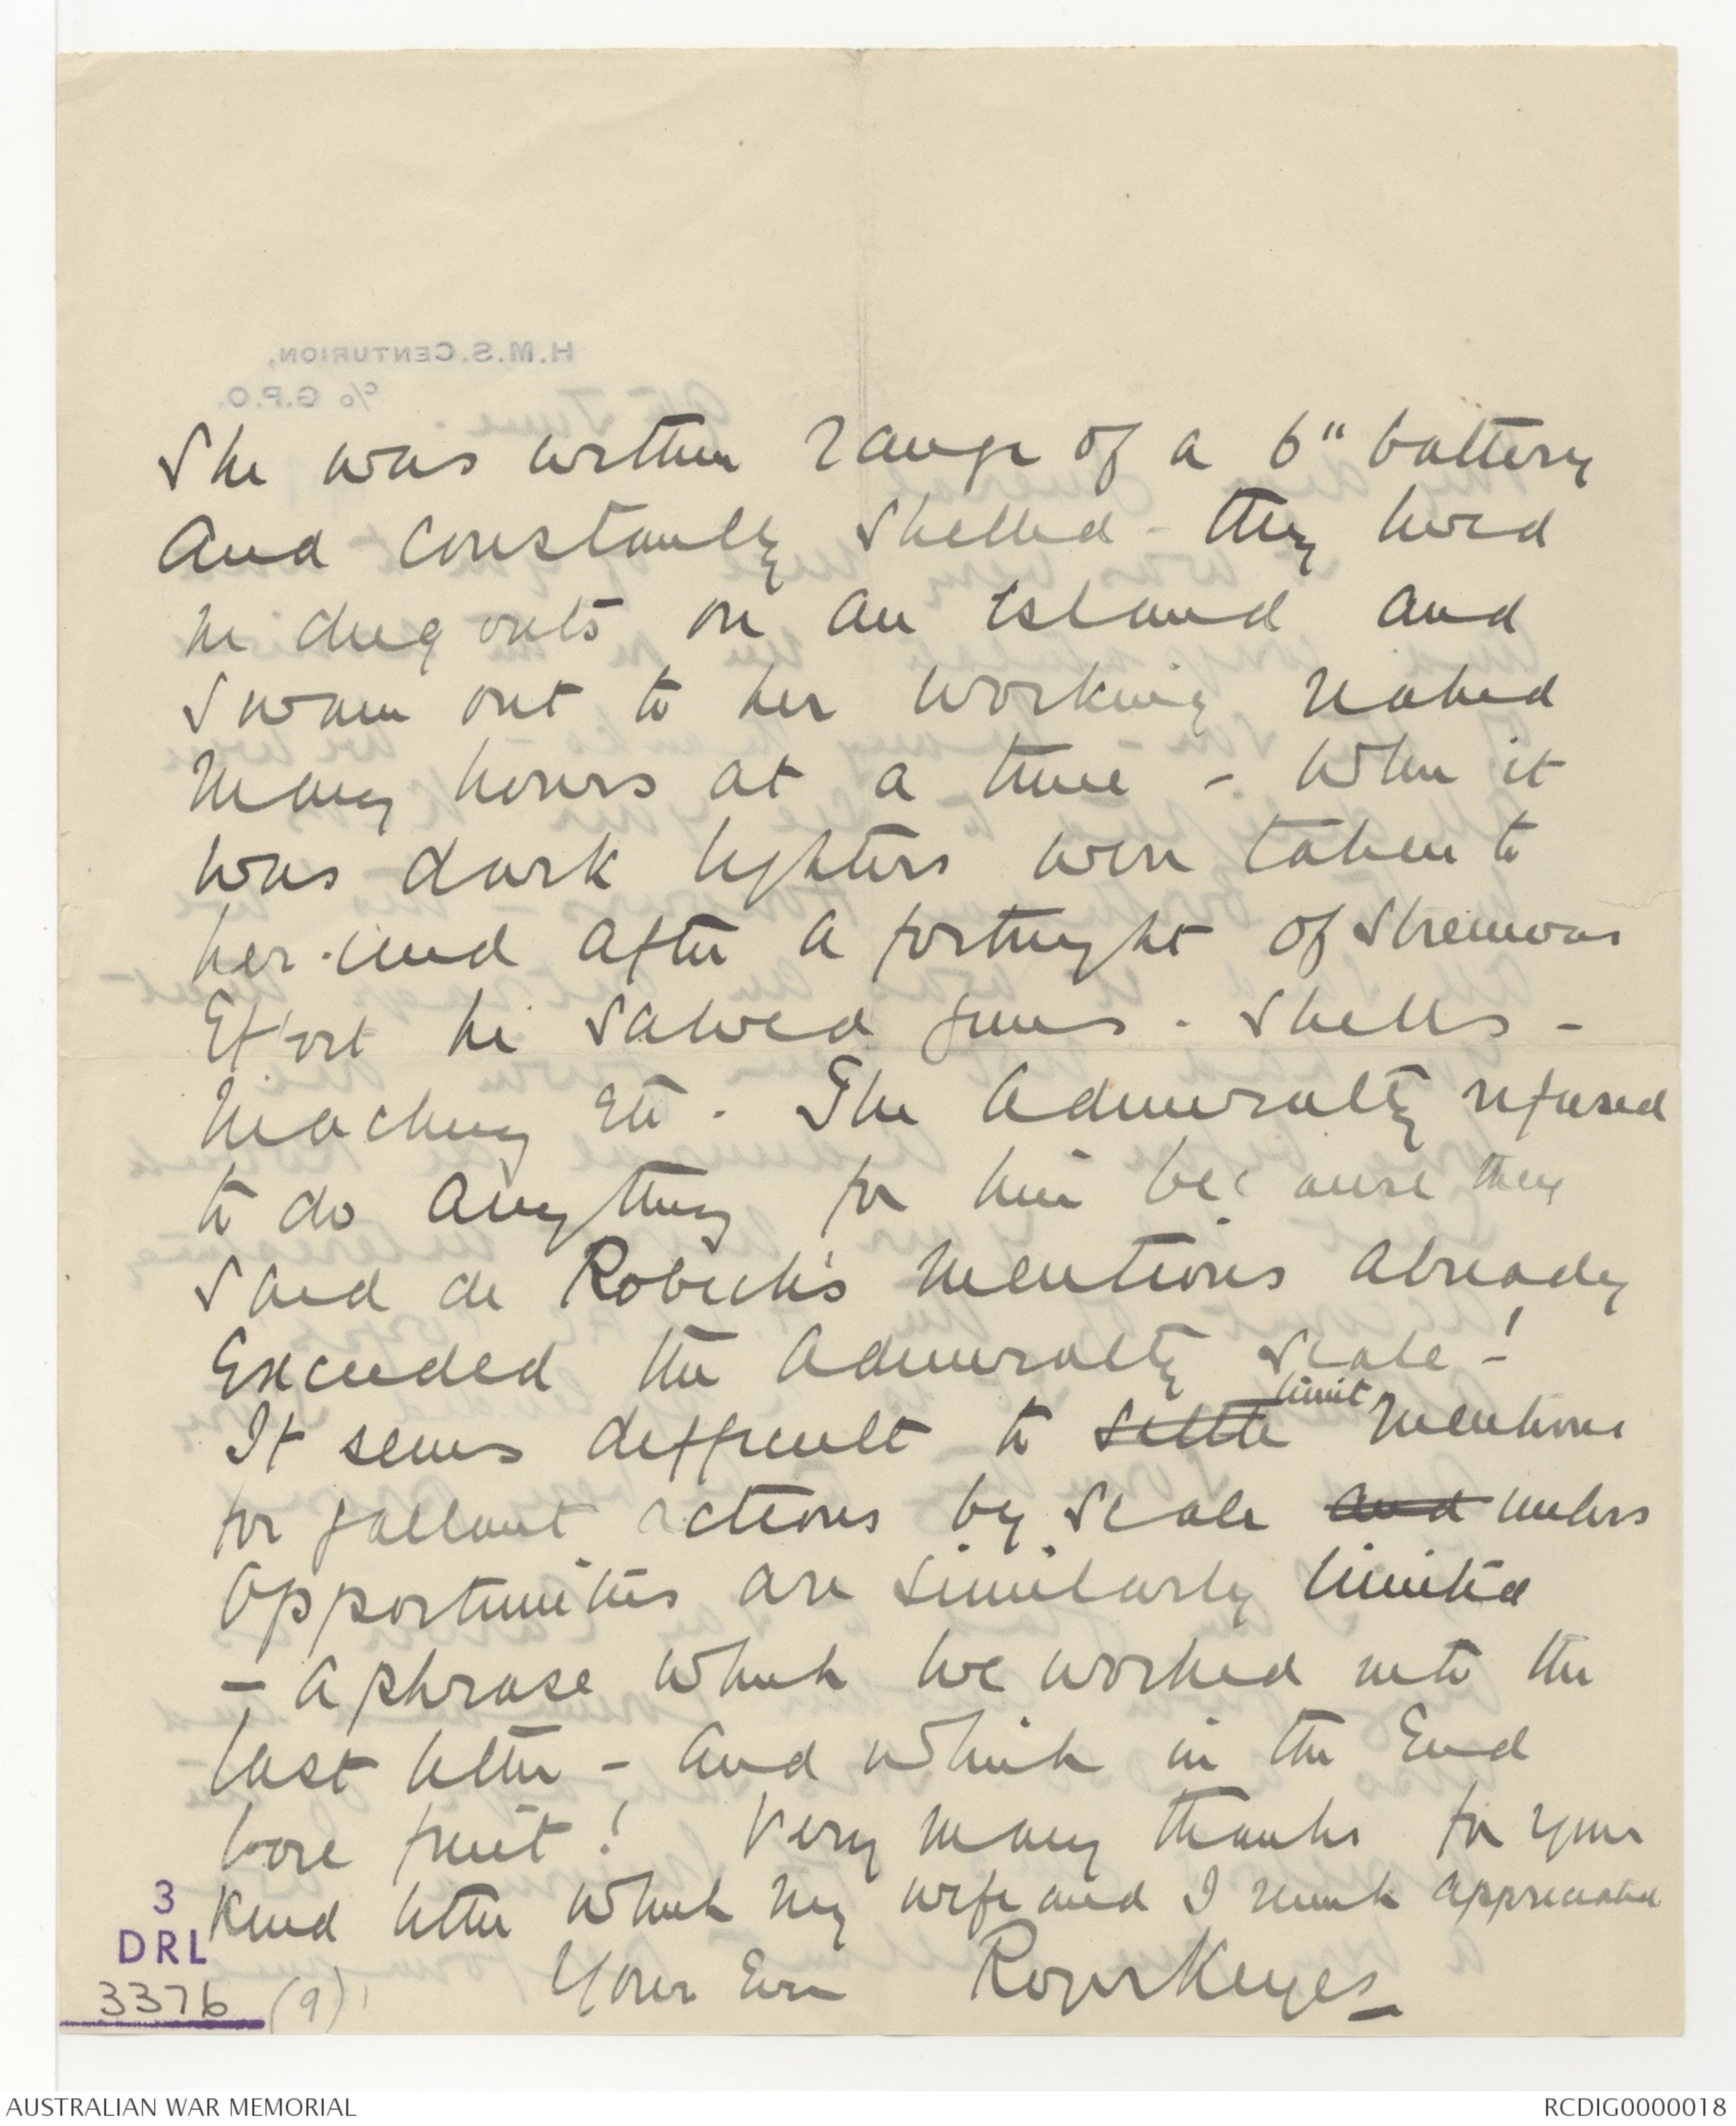 She was within range of a 6" battery
and constantly shelled - they lived
in dug outs on an island and
swam out to her working naked
many hours at a time - When it
was dark lighters were taken to
her. and after a fortnight of strenuous
Effort he salved guns. shells -
Machinery etc. The Admiralty refused
to do anything for him because they
said de Robeck's mentions already
Exceeded the Admiralty scale! -
It seems difficult to settle limit mentions
for gallant actions by scale and unless
opportunities are similarly limited
- a phrase which we worked into the
last letter - and which in the End
bore fruit! Very many thanks for your
kind letter which my wife and I much appreciated
Yours Ever Roger Keyes
H.M.S. CENTURION,
c/o G.P.O.
9th June.
3
DRL
3376 (9)
AUSTRALIAN WAR MEMORIAL
RCDIG0000018